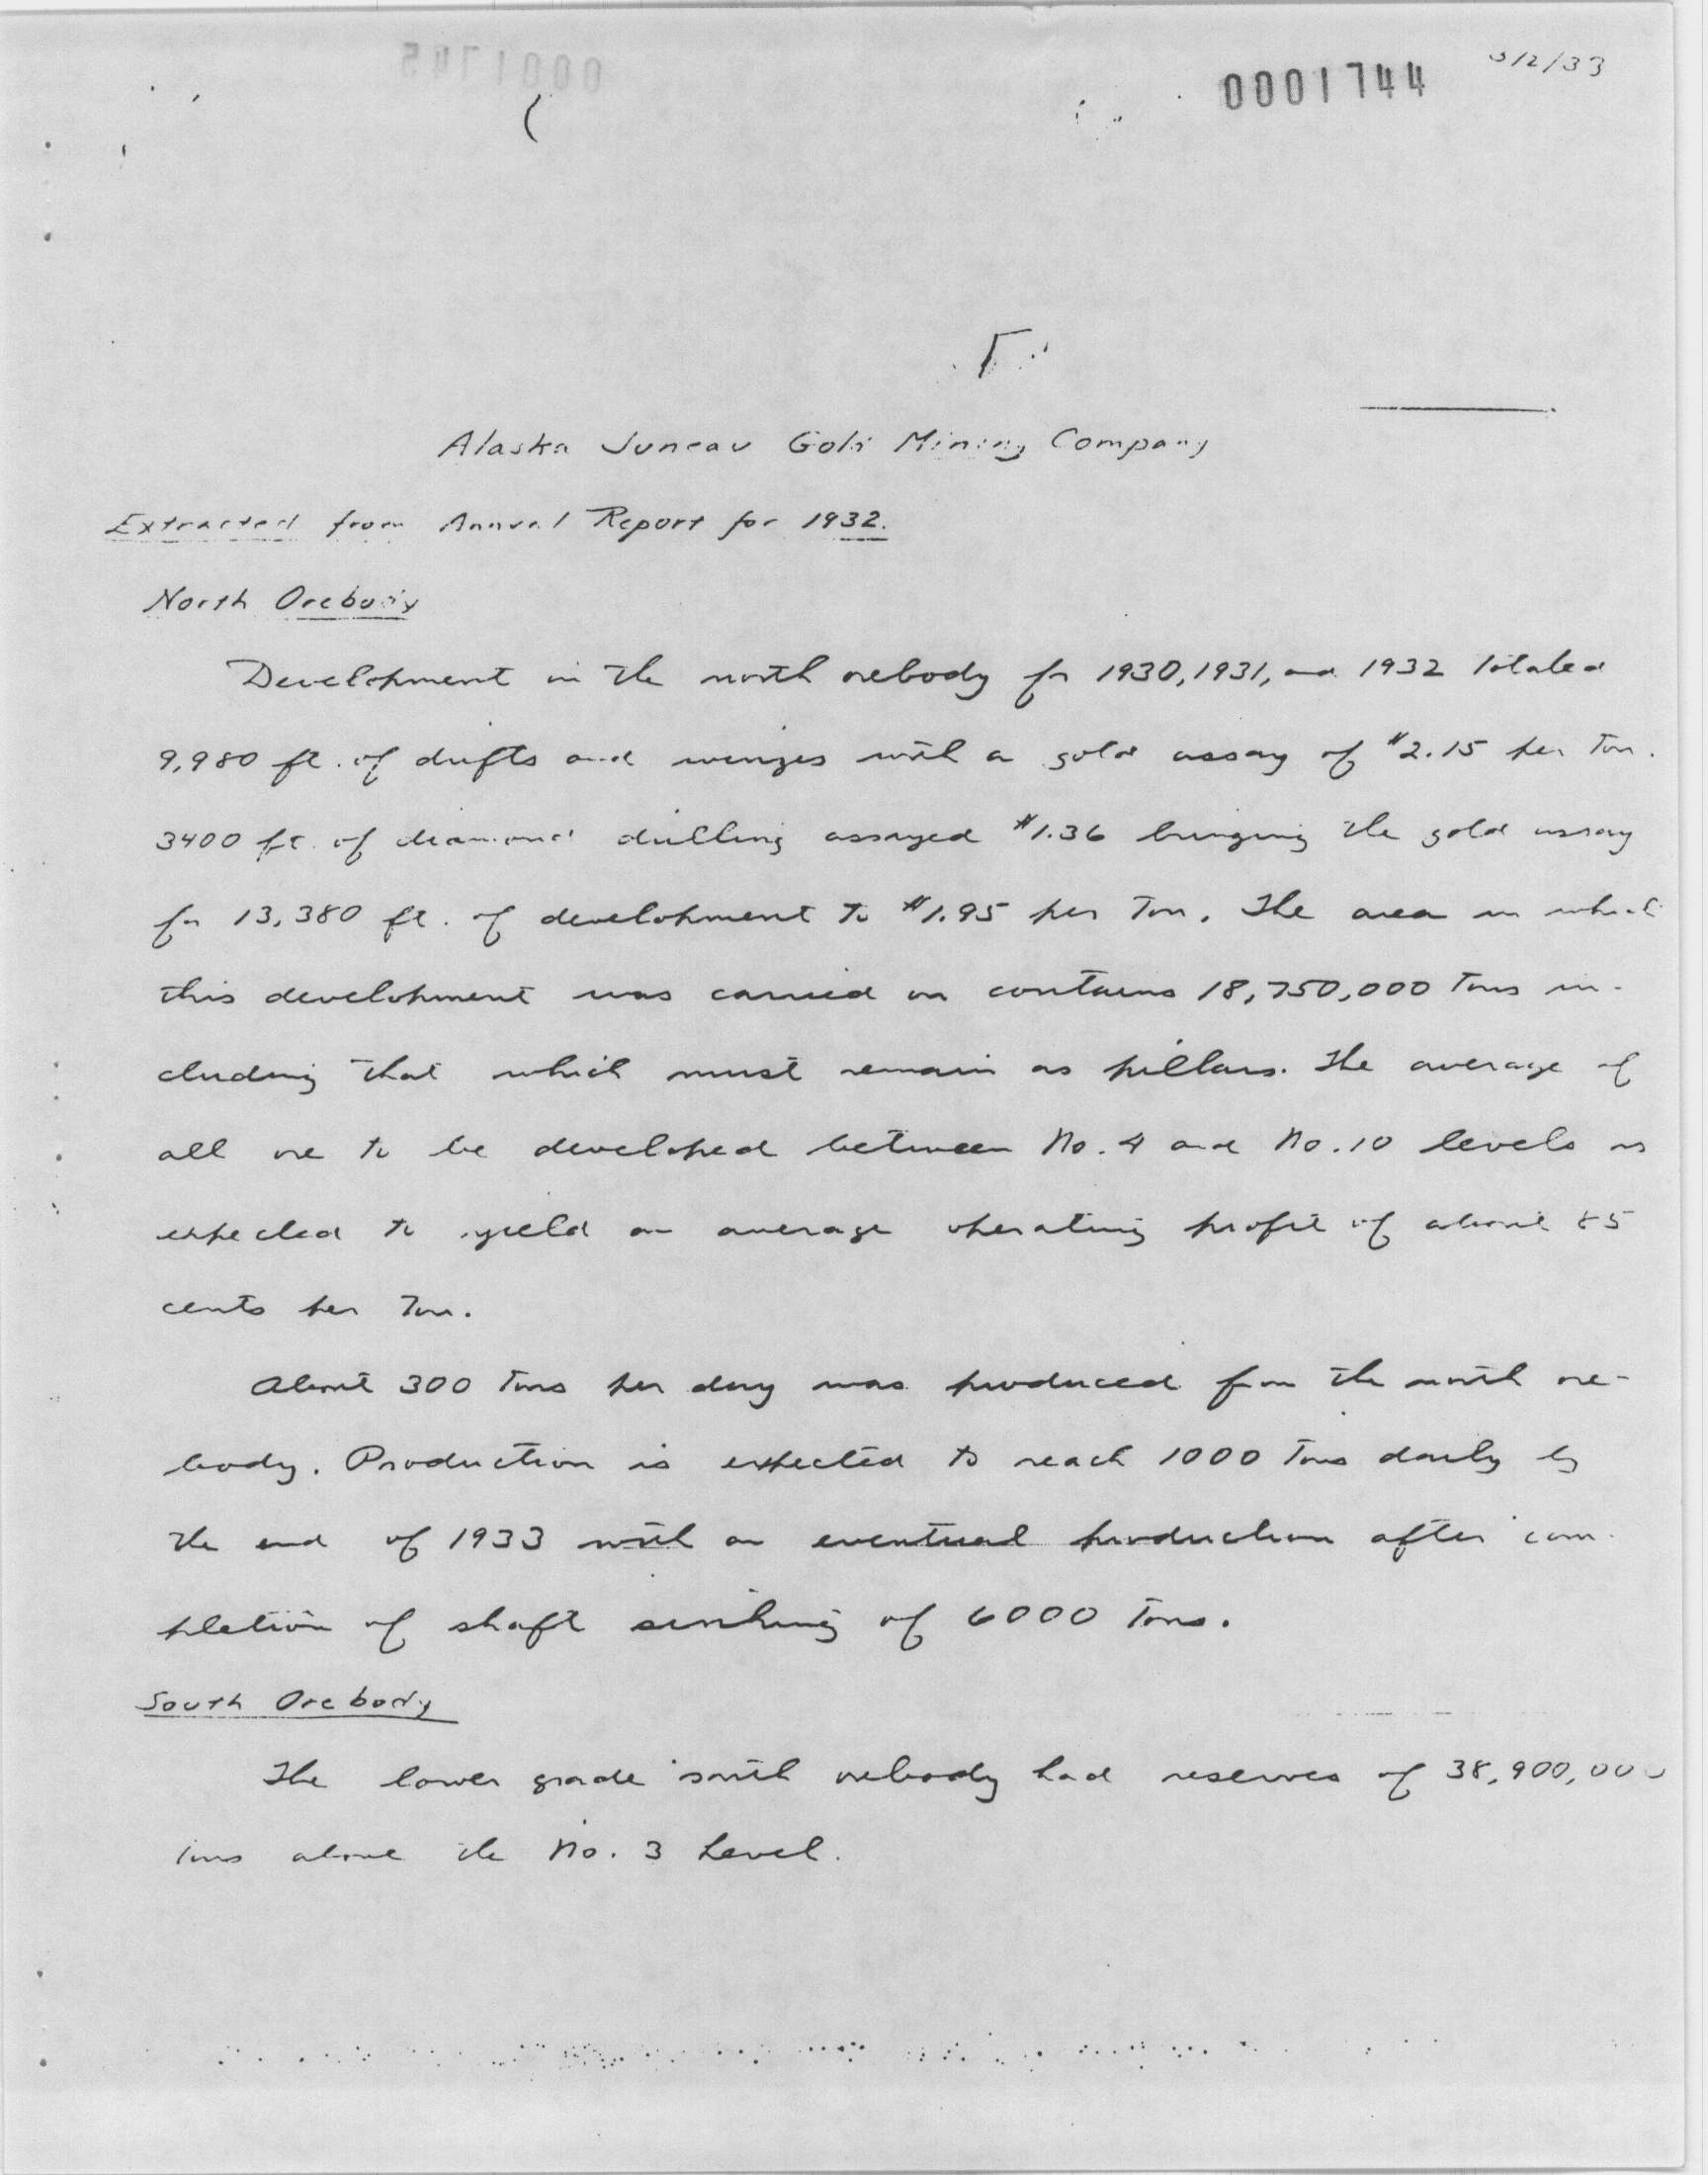 0001745
0001744
3/2/33
Alaska Juneau Gold Mining Company
Extracted from Annual Report for 1932.
North Orebody
Development in the north orebody for 1930, 1931, and 1932 totaled
9,980 ft. of drifts and winzes with a gold assay of $2.15 per ton.
3400 ft. of diamond drilling assayed $1.36 bringing the gold assay
for 13,380 ft. of development to $1.95 per ton. The area in which
this development was carried on contains 18,750,000 tons in-
cluding that which must remain as pillars. The average of
all ore to be developed between No. 4 and No. 10 levels is
expected to yield an average operating profit of about 85
cents per ton.
About 300 tons per day was produced from the north ore-
body. Production is expected to reach 1000 tons daily by
the end of 1933 with an eventual production after com-
pletion of shaft sinking of 6000 tons.
South Orebody
The lower grade south orebody had reserves of 38,900,000
tons above the No. 3 Level.